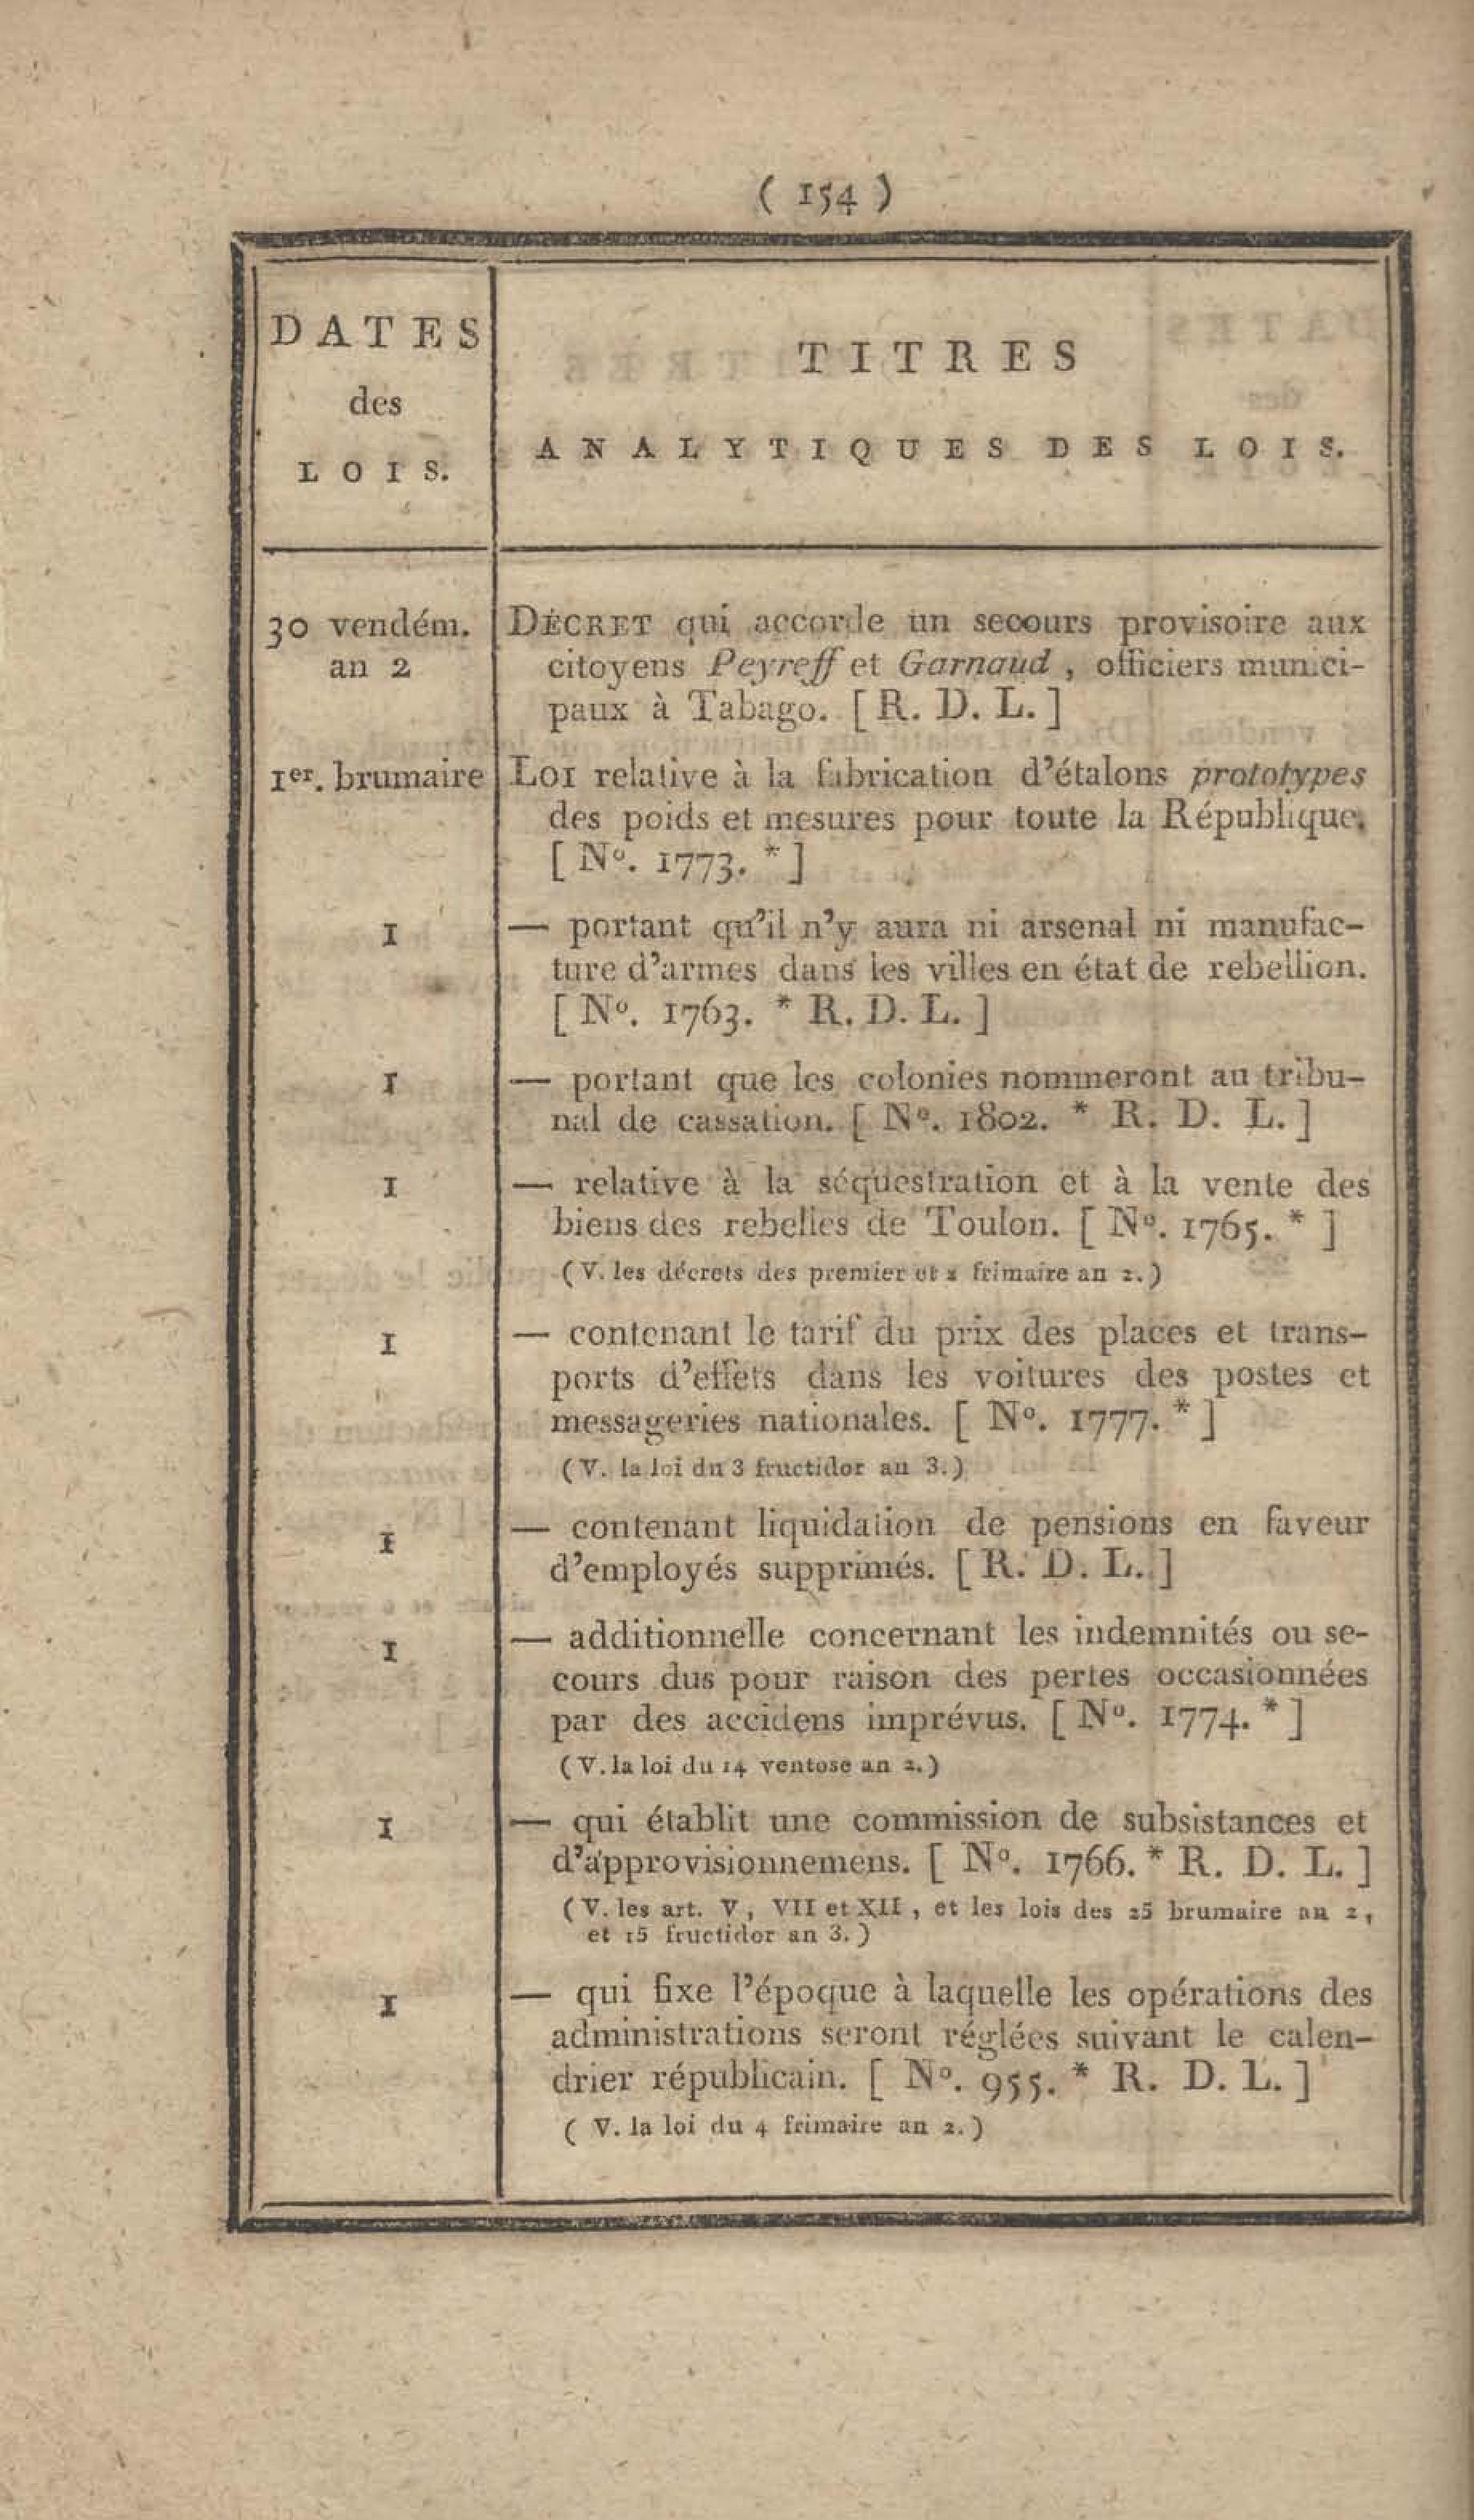 ( 154 )
DATES
des
LOIS.
TITRES
ANALYTIQUES DES LOIS.
30 vendém. DÉCRET qui accorde un secours provisoire aux
an 2 citoyens Peyreff et Garnaud, officiers munici-
paux à Tabago. [ R. D. L. ]
1er. brumaire LOI relative à la fabrication d'étalons prototypes
des poids et mesures pour toute la République.
[ No. 1773. * ]
1 — portant qu'il n'y aura ni arsenal ni manufac-
ture d'armes dans les villes en état de rebellion.
[ No. 1763. * R. D. L. ]
1 — portant que les colonies nommeront au tribu-
nal de cassation. [ No. 1802. * R. D. L. ]
1 — relative à la séquestration et à la vente des
biens des rebelles de Toulon. [ No. 1765. * ]
( V. les décrets des premier et 2 frimaire an 2. )
1 — contenant le tarif du prix des places et trans-
ports d'effets dans les voitures des postes et
messageries nationales. [ No. 1777. * ]
( V. la loi du 3 fructidor an 3. )
1 — contenant liquidation de pensions en faveur
d'employés supprimés. [ R. D. L. ]
1 — additionnelle concernant les indemnités ou se-
cours dus pour raison des pertes occasionnées
par des accidens imprévus. [ No. 1774. * ]
( V. la loi du 14 ventose an 2. )
1 — qui établit une commission de subsistances et
d'approvisionnemens. [ No. 1766. * R. D. L. ]
( V. les art. V, VII et XII, et les lois des 25 brumaire an 2,
et 15 fructidor an 3. )
1 — qui fixe l'époque à laquelle les opérations des
administrations seront réglées suivant le calen-
drier républicain. [ No. 955. * R. D. L. ]
( V. la loi du 4 frimaire an 2. )